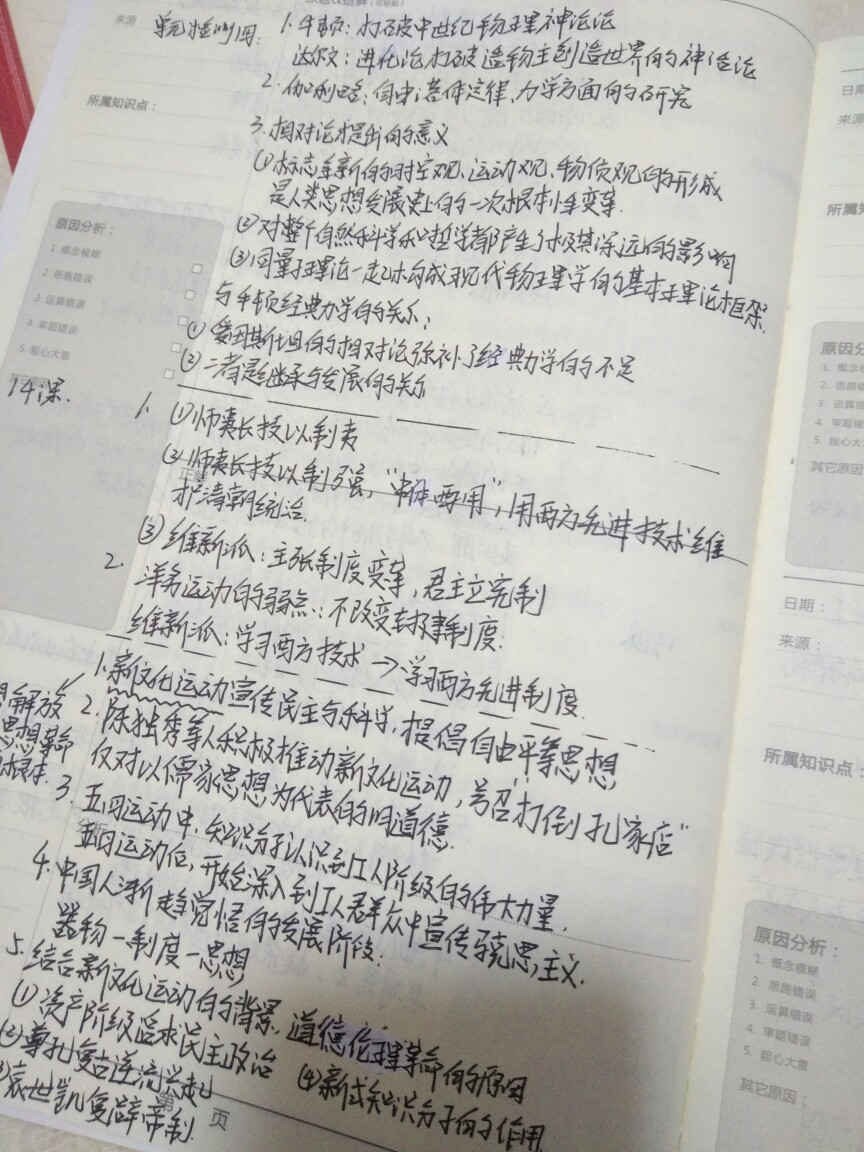 来源：
单元检测1图：
1. 牛顿：打破中世纪物理神论论
达尔文：进化论打破造物主创造世界的神造论
2. 伽利略：自由落体定律、力学方面的研究
所属知识点：
3. 相对论提出的意义
①标志全新的时空观、运动观、物质观的形成
是人类思想发展史上的一次根本性变革.
②对整个自然科学和哲学都产生了极其深远的影响
③同量子理论一起构成现代物理学的基本理论框架.
与牛顿经典力学的关系：
①爱因斯坦的相对论弥补了经典力学的不足
②二者是继承与发展的关系
原因分析：
1. 概念模糊
2. 思路错误
3. 运算错误
4. 审题错误
5. 粗心大意
14课.
1. ①师夷长技以制夷
②师夷长技以制强，“中体西用”，用西方先进技术维
护清朝统治.
正解
③维新派：主张制度变革，君主立宪制
2. 洋务运动的弱点：不改变封建制度.
维新派：学习西方技术→学习西方先进制度.
1. 新文化运动宣传民主与科学，提倡自由平等思想
解放
思想革命
根本.
2. 陈独秀等人积极推动新文化运动，号召“打倒孔家店”
仅对以儒家思想为代表的旧道德.
3. 五四运动中，知识分子认识到工人阶级的伟大力量，
五四运动后，开始深入到工人群众中宣传马克思主义.
分析
4. 中国人渐趋觉悟的发展阶段：
器物—制度—思想
5. 结合新文化运动的背景. 道德伦理革命的原因
①资产阶级追求民主政治
②尊孔复古逆流兴起
④新式知识分子的作用
袁世凯复辟帝制.
第 页
日期
来源
所属知
原因分
1. 概念模
2. 思路错
3. 运算错
4. 审题错
5. 粗心大
其它原因
日期：
来源：
所属知识点：
原因分析：
1. 概念模糊
2. 思路错误
3. 运算错误
4. 审题错误
5. 粗心大意
其它原因：